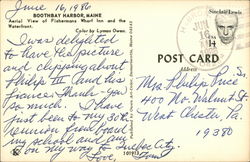 June 16, 1980
BOOTHBAY HARBOR, MAINE
Aerial View of Fishermans Wharf Inn and the
Waterfront.
Color by Lyman Owen
I was delighted
to have the picture
and clipping about
Philip III and his
Frances! Thank-you
so much. I have
just been to my 30th
reunion from board
ing school and am
on my way to
Love
101913
Sinclair Lewis
14
POST CARD
Address
Mrs. Philip Price, Jr.
400 No. Walnut St.
West Chester, Pa.
19380